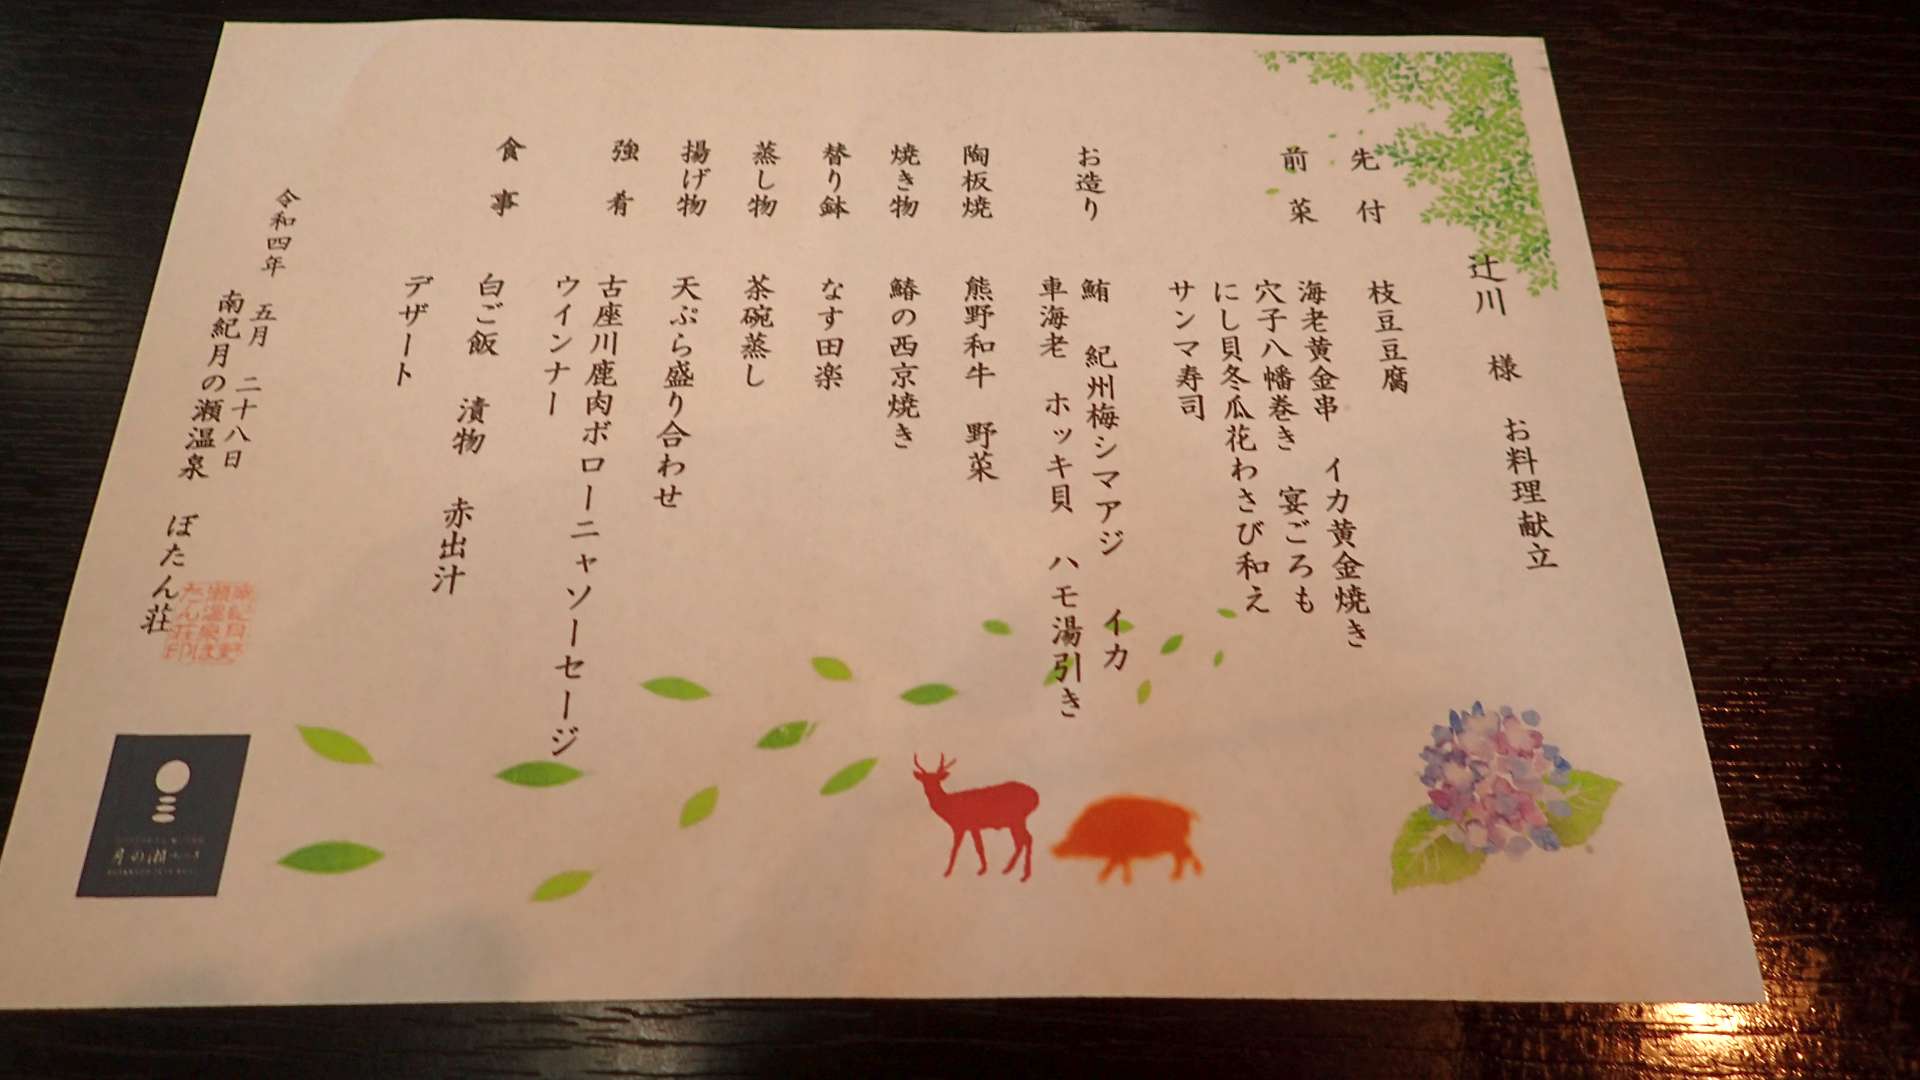 辻川 様 お料理献立
先付 枝豆豆腐
前菜 海老黄金串 イカ黄金焼き
穴子八幡巻き 宴ごろも
にし貝冬瓜花わさび和え
サンマ寿司
お造り 鮪 紀州梅シマアジ イカ
車海老 ホッキ貝 ハモ湯引き
陶板焼 熊野和牛 野菜
焼き物 鰆の西京焼き
替り鉢 なす田楽
蒸し物 茶碗蒸し
揚げ物 天ぷら盛り合わせ
強肴 古座川鹿肉ボローニャソーセージ
ウインナー
食事 白ご飯 漬物 赤出汁
デザート
令和四年 五月 二十八日
南紀月の瀬温泉 ぼたん荘
月の瀬